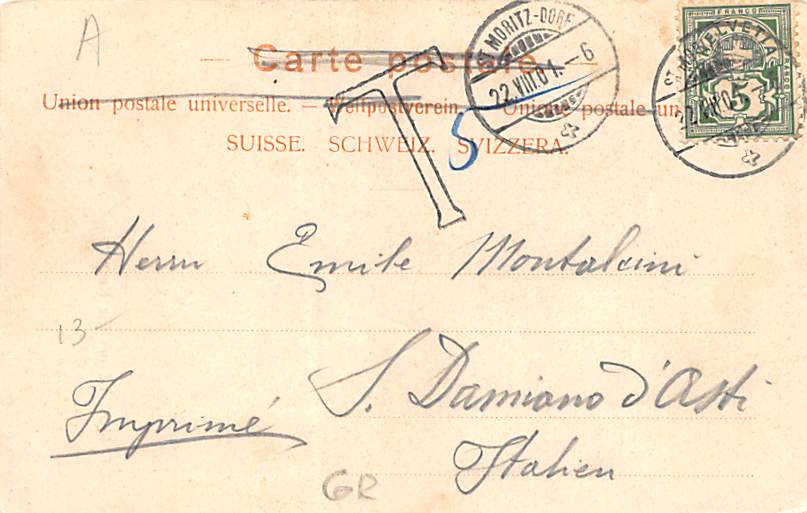 A
Carte postale
Union postale universelle. — Weltpostverein. — Unione postale un
SUISSE. SCHWEIZ. SVIZZERA.
T
5
ST. MORITZ-DORF
22.VIII.01.-6
FRANCO
HELVETIA
5
Herrn Emile Montalcini
13-
S. Damiano d'Asti
Imprimé
Italien
GR